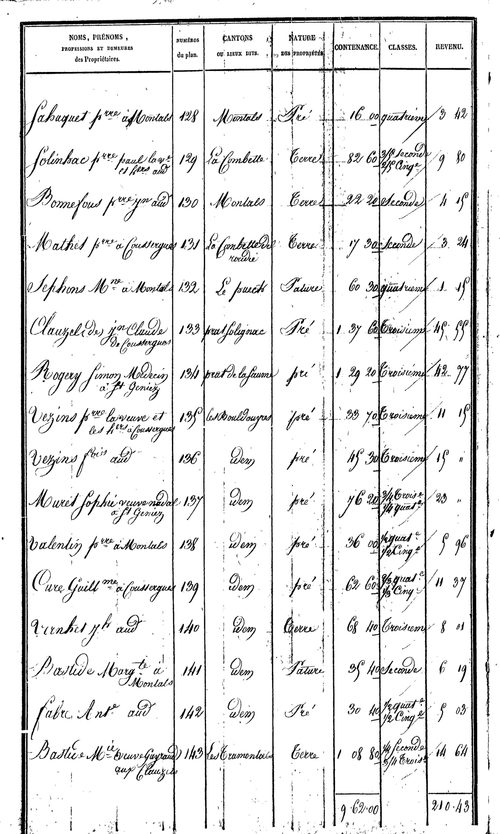 NOMS, PRÉNOMS, PROFESSIONS ET DEMEURES des Propriétaires. NUMÉROS du plan. CANTONS OU LIEUX DITS. NATURE DES PROPRIÉTÉS. CONTENANCE. CLASSES. REVENU.
Sabaquet p.rre à Montals 128 Montals Pré 16 00 quatrieme 3 42
Solinhac p.rre paul la v.e et h.ers aud 129 La Combette Terre 82 60 seconde Cinq.e 9 80
Bonnefous p.rre jn aud 130 Montals Terre 22 20 Seconde 4 15
Mathet p.rre à Coussergues 131 La Combette de Terre 17 30 Seconde 3 24
Sephons M.ne à Montals 132 Le puech Pature 60 30 quatrieme 1 15
Clauzel des jn Claude de Coussergues 133 prat solignac Pré 1 37 60 Troisieme 45 55
Rogery Simon Medecin à S.t Geniez 134 prat de la saume pré 1 29 20 Troisieme 42 77
Vezins p.rre la veuve et les h.ers à Coussergues 135 les Bouldouyres pré 33 70 Troisieme 11 15
Vezins f.cois aud 136 idem pré 45 30 Troisieme 15 "
Muret Sophie veuve nadal à S.t Geniez 137 idem pré 76 20 3/4 Trois.e 1/4 quat.e 23 "
Valentin p.rre à Montals 138 idem pré 36 00 1/2 quat.e 1/2 Cinq.e 5 96
Cure Guill.me à Coussergues 139 idem pré 62 60 quat.e Cinq.e 11 37
Vernhet jh aud 140 idem Terre 68 40 Troisieme 8 01
Bastide Marg.te à Montals 141 idem Pature 35 40 Seconde 6 19
Fabre Ant.e aud 142 idem Pré 30 40 1/2 quat.e 1/2 Cinq.e 5 03
Bastide M.ie veuve Guyraud aux Clauzels 143 Les Tramontels Terre 1 08 80 1/4 seconde 3/4 Trois.e 14 64
9 62 00 210 43